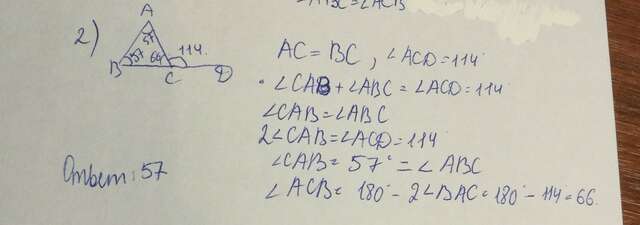 ∠ABC = ∠ACB
2)
A
57
114°
B 57 66 C D
AC = BC, ∠ACD = 114°
∠CAB + ∠ABC = ∠ACD = 114°
∠CAB = ∠ABC
2∠CAB = ∠ACD = 114°
∠CAB = 57° = ∠ABC
∠ACB = 180° - 2∠BAC = 180° - 114 = 66.
Ответ: 57